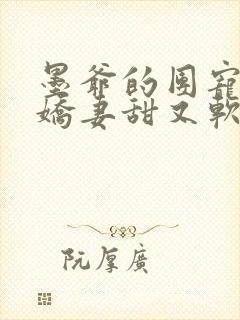 墨爺的團寵
嬌妻甜又軟
阮厚廣